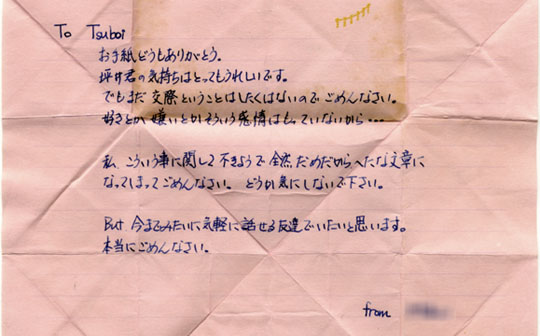 To Tsuboi
お手紙どうもありがとう。
坪井君の気持ちはとってもうれしいです。
でもまだ交際ということはしたくはないのでごめんなさい。
好きとか嫌いとかそういう感情はもっていないから・・・
私、こういう事に関して不きようで全然だめだからへたな文章に
なってしまってごめんなさい。どうか気にしないで下さい。
But 今までみたいに気軽に話せる友達でいたいと思います。
本当にごめんなさい。
from